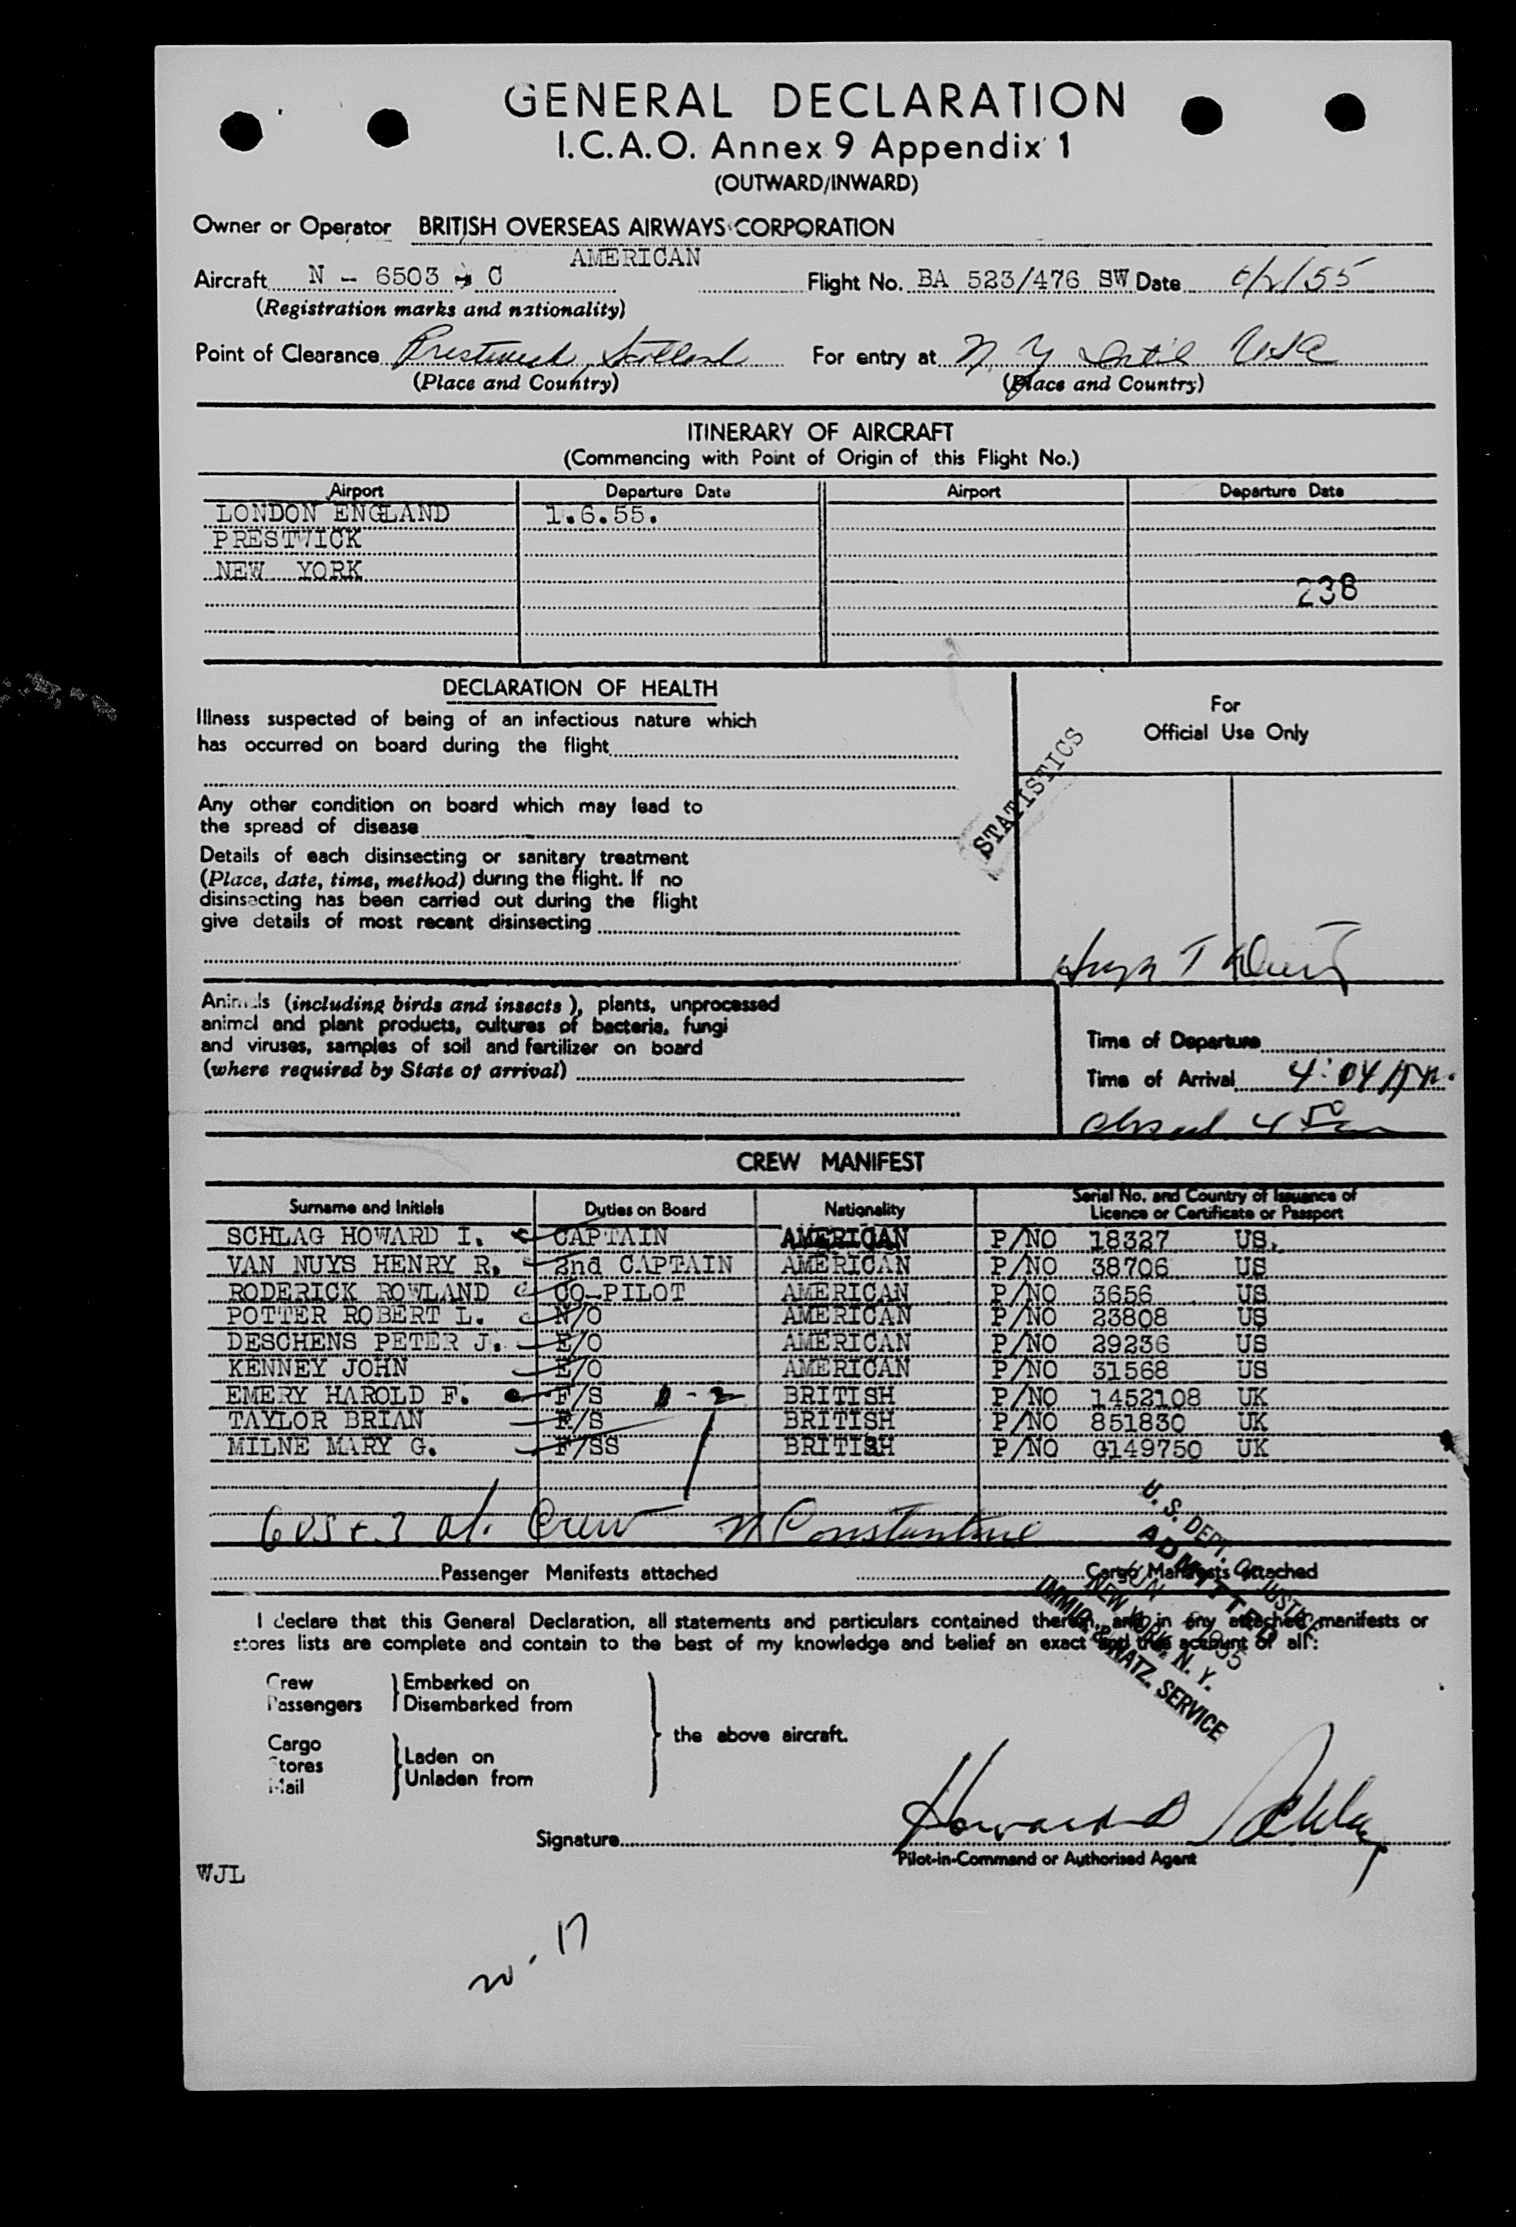 GENERAL DECLARATION
I.C.A.O. Annex 9 Appendix 1
(OUTWARD/INWARD)
Owner or Operator BRITISH OVERSEAS AIRWAYS CORPORATION
AMERICAN
Aircraft N - 6503 - C Flight No. BA 523/476 SW Date 6/2/55
(Registration marks and nationality)
Point of Clearance Prestwick, Scotland For entry at N. Y. Int'l USA
(Place and Country) (Place and Country)
ITINERARY OF AIRCRAFT
(Commencing with Point of Origin of this Flight No.)
Airport Departure Date Airport Departure Date
LONDON ENGLAND 1.6.55.
PRESTWICK
NEW YORK
238
DECLARATION OF HEALTH
For
Official Use Only
Illness suspected of being of an infectious nature which
has occurred on board during the flight
STATISTICS
Any other condition on board which may lead to
the spread of disease
Details of each disinsecting or sanitary treatment
(Place, date, time, method) during the flight. If no
disinsecting has been carried out during the flight
give details of most recent disinsecting
Animals (including birds and insects), plants, unprocessed
animal and plant products, cultures of bacteria, fungi
and viruses, samples of soil and fertilizer on board
(where required by State of arrival)
Time of Departure
Time of Arrival 4:04 pm.
4 50
CREW MANIFEST
Surname and Initials Duties on Board Nationality Serial No. and Country of Issuance of
Licence or Certificate or Passport
SCHLAG HOWARD I. CAPTAIN AMERICAN P/NO 18327 US.
VAN NUYS HENRY R. 2nd CAPTAIN AMERICAN P/NO 38706 US
RODERICK ROWLAND CO-PILOT AMERICAN P/NO 3656 US
POTTER ROBERT L. N/O AMERICAN P/NO 23808 US
DESCHENS PETER J. E/O AMERICAN P/NO 29236 US
KENNEY JOHN E/O AMERICAN P/NO 31568 US
EMERY HAROLD F. F/S D-2 BRITISH P/NO 1452108 UK
TAYLOR BRIAN F/S BRITISH P/NO 851830 UK
MILNE MARY G. F/SS BRITISH P/NO G149750 UK
6 US + 3 al. Crew N Constantine
Passenger Manifests attached Cargo Manifests attached
U. S. DEPT. OF JUSTICE
ADMITTED
JUN 1955
NEW YORK, N. Y.
IMMIG. & NATZ. SERVICE
I declare that this General Declaration, all statements and particulars contained therein, and in any attached manifests or
stores lists are complete and contain to the best of my knowledge and belief an exact and true account of all:
Crew
Passengers
Embarked on
Disembarked from
the above aircraft.
Cargo
Stores
Mail
Laden on
Unladen from
Signature Howard Schlag
Pilot-in-Command or Authorised Agent
WJL